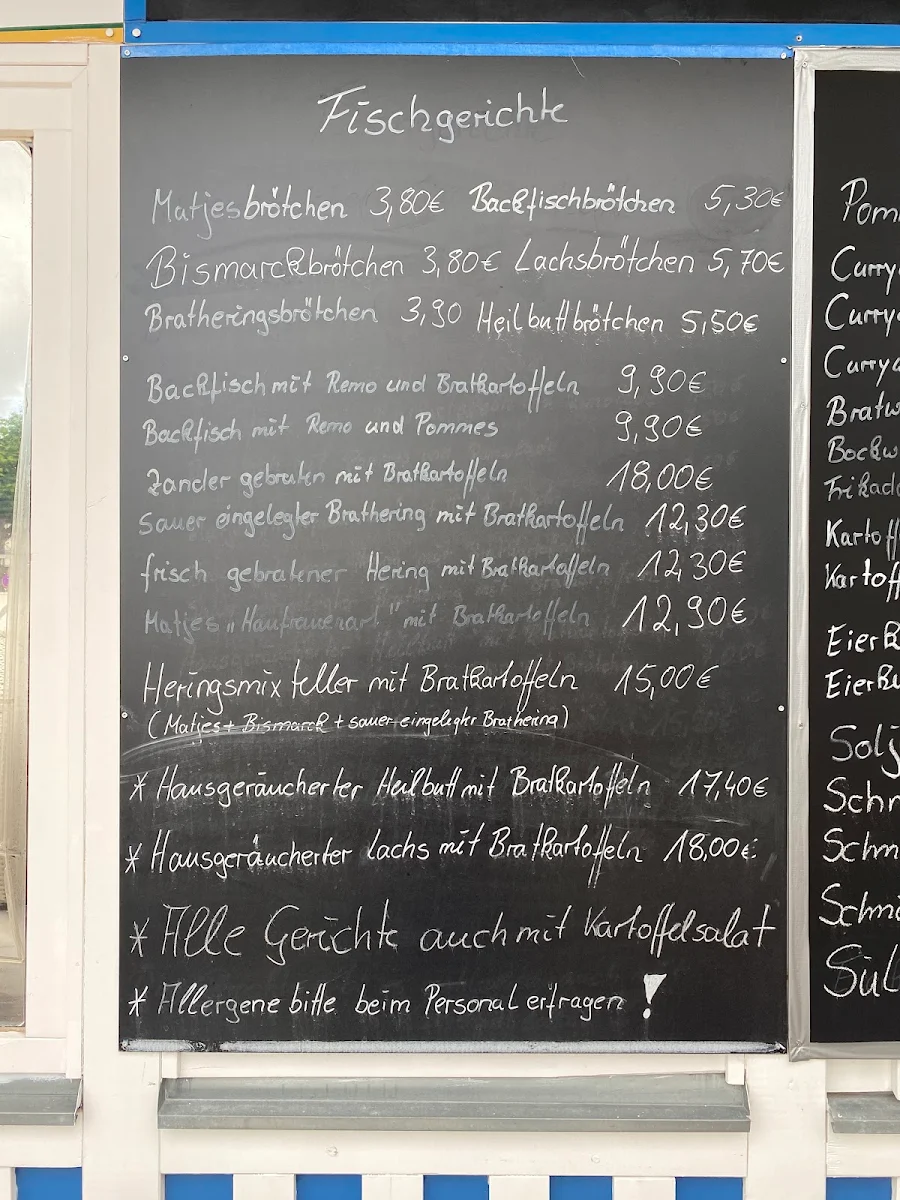 Fischgerichte
Matjesbrötchen 3,80€ Backfischbrötchen 5,30€
Bismarckbrötchen 3,80€ Lachsbrötchen 5,70€
Bratheringsbrötchen 3,90 Heilbuttbrötchen 5,50€
Backfisch mit Remo und Bratkartoffeln 9,90€
Backfisch mit Remo und Pommes 9,90€
Zander gebraten mit Bratkartoffeln 18,00€
Sauer eingelegter Brathering mit Bratkartoffeln 12,30€
frisch gebratener Hering mit Bratkartoffeln 12,30€
Matjes „Haufrauenart" mit Bratkartoffeln 12,90€
Heringsmixteller mit Bratkartoffeln 15,00€
(Matjes + Bismarck + sauer eingelegter Brathering)
* Hausgeräucherter Heilbutt mit Bratkartoffeln 17,40€
* Hausgeräucherter Lachs mit Bratkartoffeln 18,00€
* Alle Gerichte auch mit Kartoffelsalat
* Allergene bitte beim Personal erfragen!
Pom
Curry
Curry
Curry
Bratw
Bockw
Frikad
Kartoff
Kartoff
Eierk
Eierku
Solj
Schn
Schm
Schm
Sül